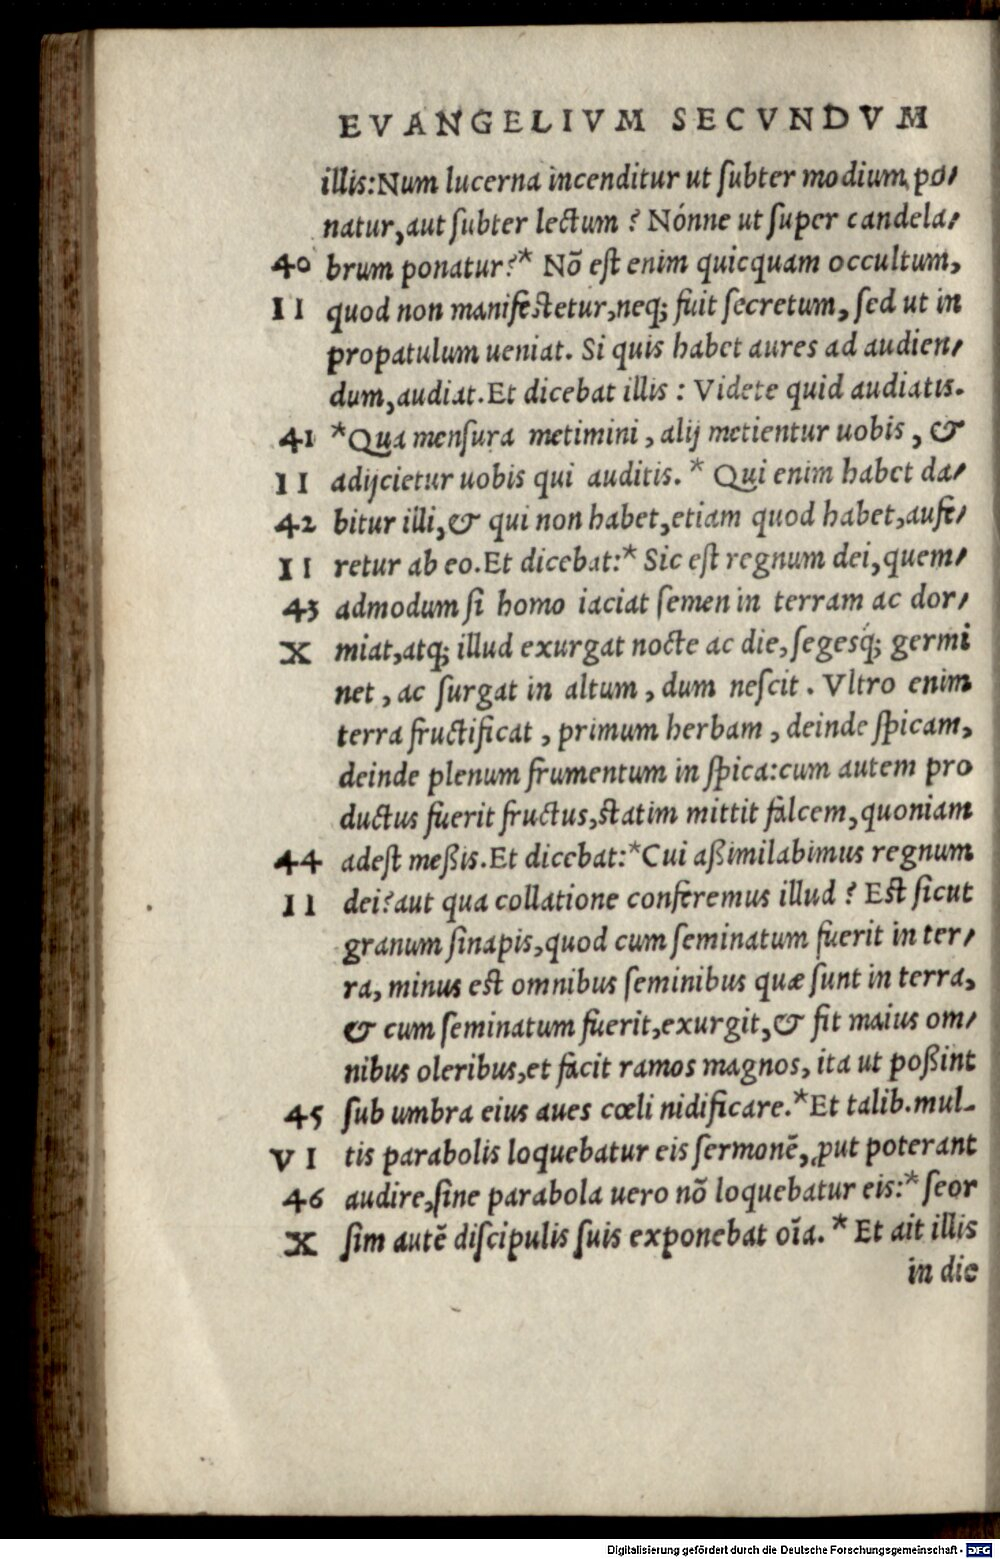 EVANGELIVM SECVNDVM
illis:Num lucerna incenditur ut ſubter modium po/
natur,aut ſubter lectum ? Nónne ut ſuper candela/
40 brum ponatur?* Nõ eſt enim quicquam occultum,
II quod non manifeſtetur,neq; fuit ſecretum, ſed ut in
propatulum ueniat. Si quis habet aures ad audien/
dum,audiat.Et dicebat illis : Videte quid audiatis.
41 *Qua menſura metimini , alij metientur uobis , &
II adijcietur uobis qui auditis. * Qui enim habet da/
42 bitur illi,& qui non habet,etiam quod habet,aufe/
II retur ab eo.Et dicebat:* Sic eſt regnum dei,quem/
43 admodum ſi homo iaciat ſemen in terram ac dor/
X miat,atq; illud exurgat nocte ac die,ſegesq́; germi
net , ac ſurgat in altum , dum neſcit . Vltro enim
terra fructificat , primum herbam , deinde ſpicam,
deinde plenum frumentum in ſpica:cum autem pro
ductus fuerit fructus,ſtatim mittit falcem,quoniam
44 adeſt meßis.Et dicebat:*Cui aßimilabimus regnum
II dei?aut qua collatione conferemus illud ? Eſt ſicut
granum ſinapis,quod cum ſeminatum fuerit in ter/
ra, minus eſt omnibus ſeminibus quæ ſunt in terra,
& cum ſeminatum fuerit,exurgit,& fit maius om/
nibus oleribus,et facit ramos magnos, ita ut poßint
45 ſub umbra eius aues cœli nidificare.*Et talib.mul-
VI tis parabolis loquebatur eis ſermonẽ, ꝓut poterant
46 audire,ſine parabola uero nõ loquebatur eis:* ſeor
X ſim autẽ diſcipulis ſuis exponebat oĩa. * Et ait illis
in die
Digitalisierung gefördert durch die Deutsche Forschungsgemeinschaft - DFG